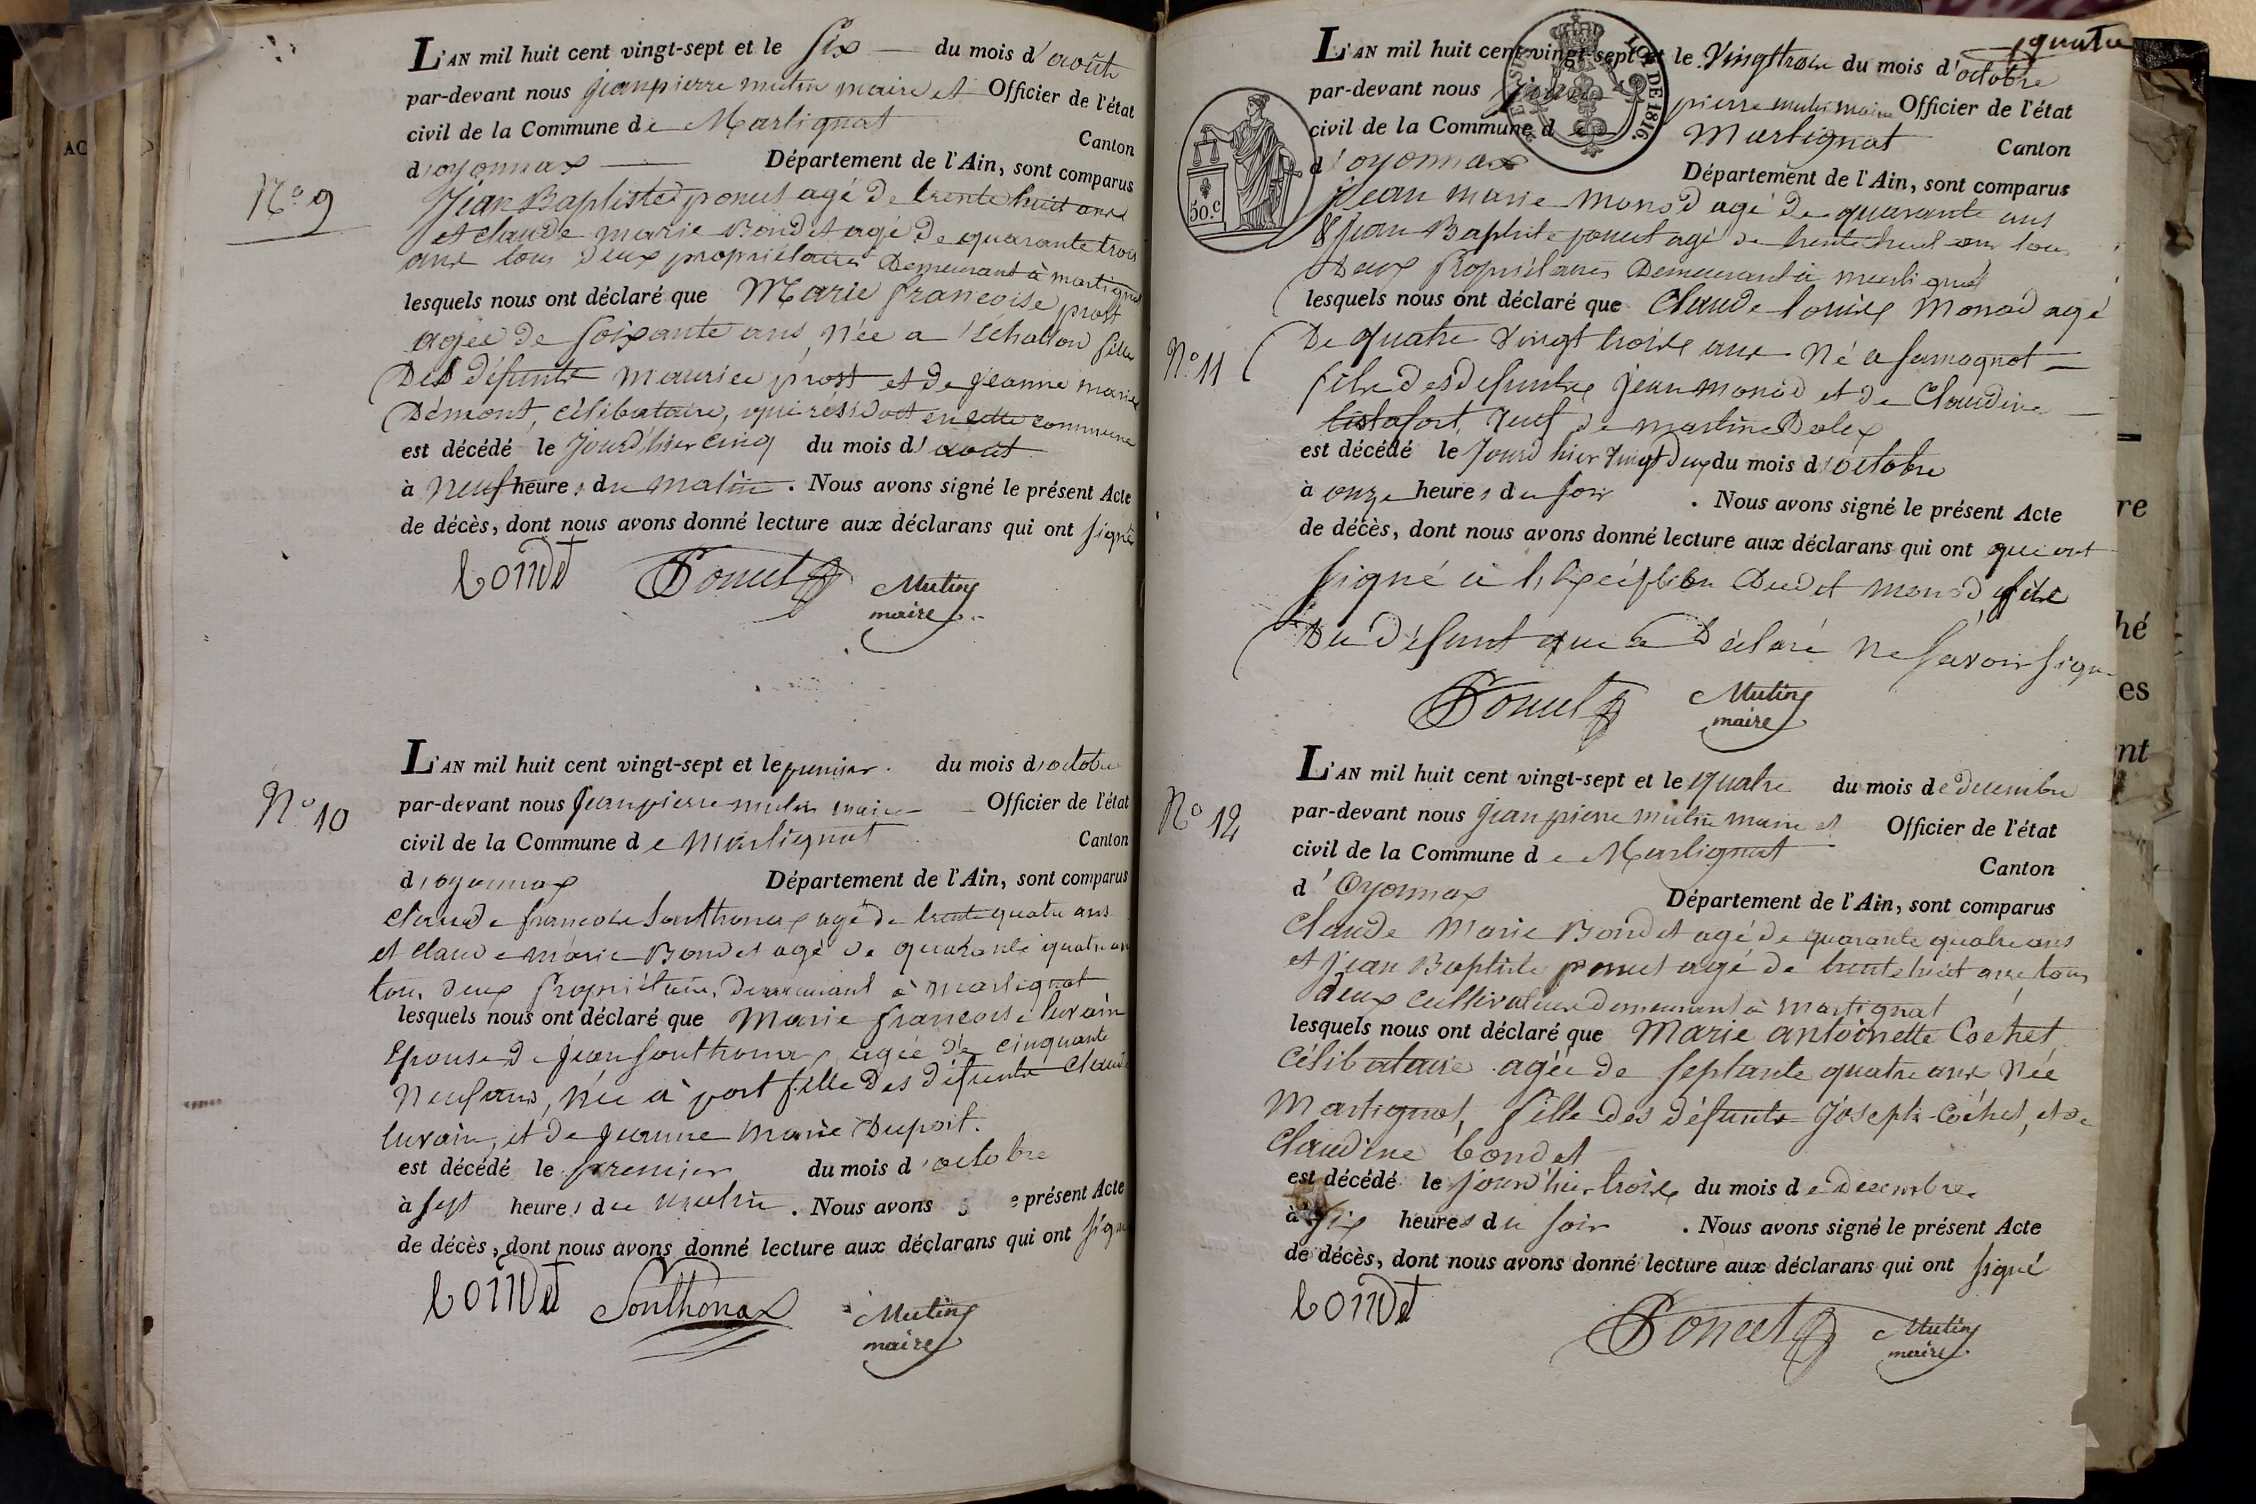 N.o 9
L'AN mil huit cent vingt-sept et le six du mois d'août
par-devant nous jeanpierre mutin maire et Officier de l'état
civil de la Commune de Martignat Canton
d'oyonnax Département de l'Ain, sont comparus
Jean Baptiste poncet agé de trente huit ans
et claude marie Bondet agé de quarante trois
ans tous deux propriétaires Demeurant à martignat
lesquels nous ont déclaré que Marie françoise prost
agée de soixante ans, Née a l'échallon fille
Des défunts maurice prost et de jeanne marie
Démont, célibataire, qui résidoit en cette commune
est décédé le jourd'hier cinq du mois d'août
à neuf heures du matin. Nous avons signé le présent Acte
de décès, dont nous avons donné lecture aux déclarans qui ont signé
bondet Poncet Mutin
maire
N.o 10
L'AN mil huit cent vingt-sept et le premier. du mois d'octobre
par-devant nous jeanpierre mutin maire Officier de l'état
civil de la Commune de Martignat Canton
d'oyonnax Département de l'Ain, sont comparus
claude françois Sonthonax agé de trente quatre ans
et claude marie Bondet agé de quarante quatre ans
tous deux propriétaires, demeurant à martignat
lesquels nous ont déclaré que Marie françoise luvrain
Epouse de jean Sonthonax, agée de cinquante
Neuf ans, Née à port fille Des défunts claude
luvrain, et de jeanne marie Duport.
est décédé le premier du mois d'octobre
à sept heures du matin. Nous avons s e présent Acte
de décès, dont nous avons donné lecture aux déclarans qui ont signé
bondet Sonthonax Mutin
maire
quatre
L'AN mil huit cent vingt-sept et le Vingttrois du mois d'octobre
par-devant nous jean pierre mutin maire Officier de l'état
civil de la Commune de Martignat Canton
d'oyonnax Département de l'Ain, sont comparus
LOI DE 1816.
50.c
jean marie monod agé de quarante ans
& jean Baptiste poncet agé de trente huit ans tous
Deux Propriétaires Demeurant à martignat
N.o 11
lesquels nous ont déclaré que Claude louis monod agé
De quatre vingt trois ans Né a samognat
fils des defunts jean monod et de Claudine
Veuf de martine
est décédé le jourd'hier vingt deux du mois d'octobre
à onze heures du soir. Nous avons signé le présent Acte
de décès, dont nous avons donné lecture aux déclarans qui ont qui ont
signé à l'exception Dudit monod fils
Du défunt qui a Déclaré Ne savoir signer
Poncet Mutin
maire
N.o 12
L'AN mil huit cent vingt-sept et le quatre du mois de Decembre
par-devant nous jean pierre mutin maire et Officier de l'état
civil de la Commune de Martignat Canton
d'Oyonnax Département de l'Ain, sont comparus
Claude Marie Bondet agé de quarante quatre ans
et jean Baptiste poncet agé de trente huit ans, tous
deux cultivateurs demeurant à martignat
lesquels nous ont déclaré que Marie antoinette Cochet
Célibataire agée de septante quatre ans Née
Martignat, fille des défunts joseph cochet, et de
Claudine bondet
est décédé le jourd'hier trois du mois de Decembre.
à six heures du soir. Nous avons signé le présent Acte
de décès, dont nous avons donné lecture aux déclarans qui ont signé
bondet Poncet Mutin
maire